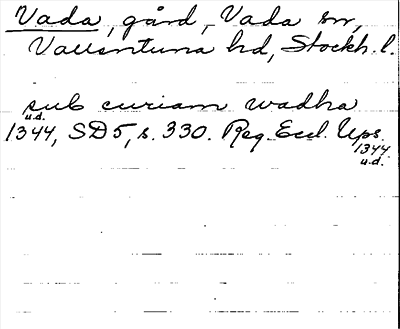 Vada, gård, Vada sn,
Vallentuna hd, Stockh. l.
sub curiam wadha
1344, SD 5, s. 330. Reg. Eccl. Ups.
u.d. 1344
u.d.